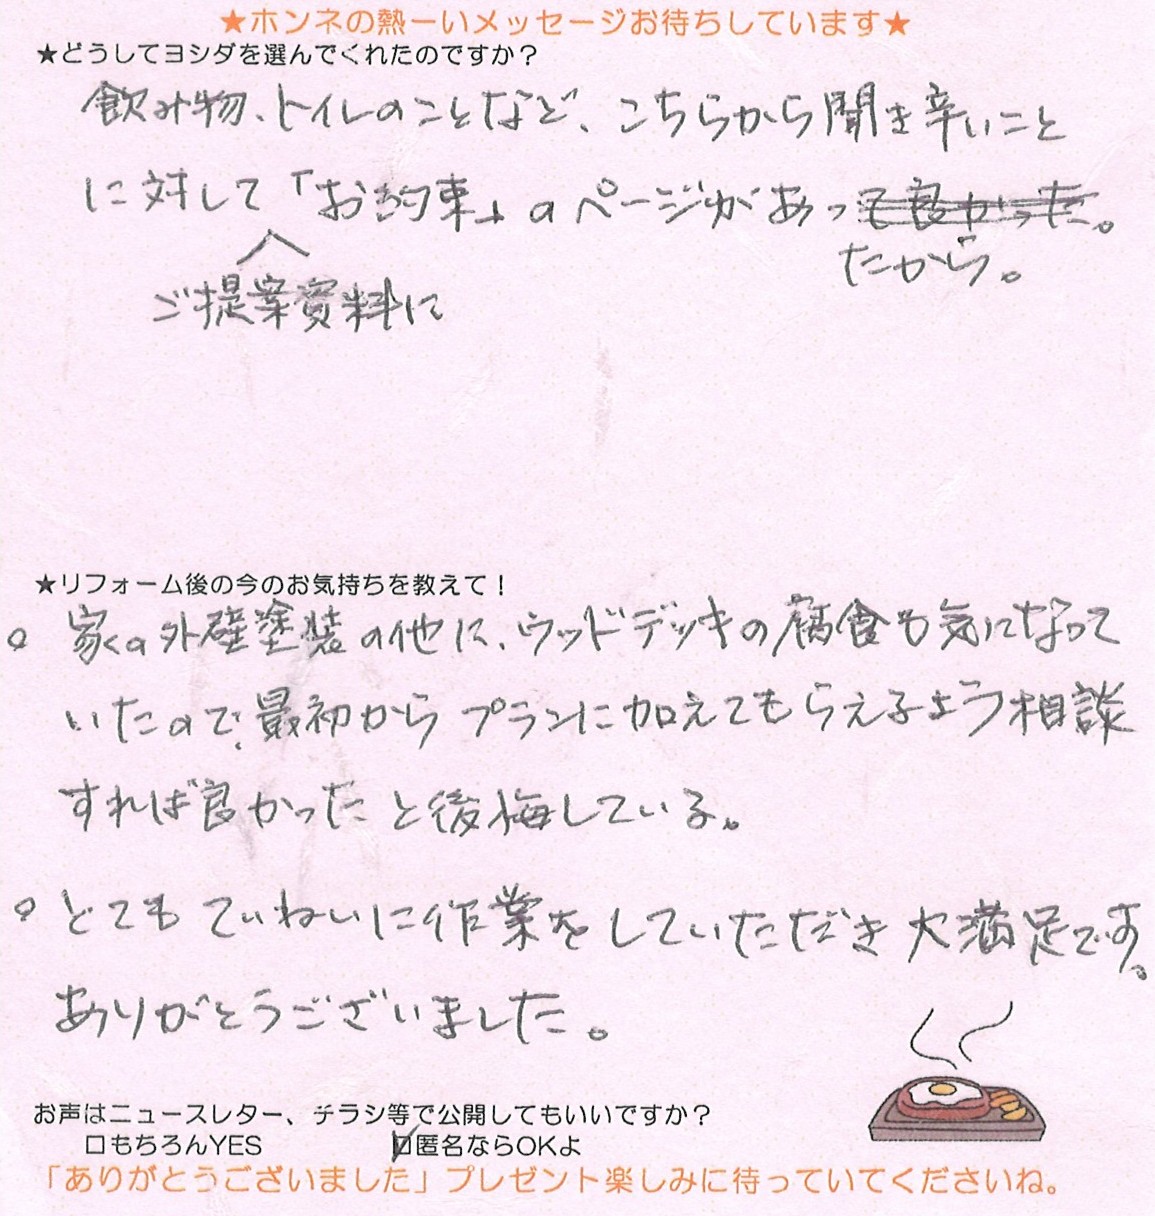 ★ホンネの熱ーいメッセージお待ちしています★
★どうしてヨシダを選んでくれたのですか？
飲み物、トイレのことなど、こちらから聞き辛いこと
に対して「お約束」のページがあって良かった。
たから。
ご提案資料に
★リフォーム後の今のお気持ちを教えて！
。家の外壁塗装の他に、ウッドデッキの腐食も気になって
いたので、最初からプランに加えてもらえるよう相談
すれば良かったと後悔している。
。とてもていねいに作業をしていただき大満足です。
ありがとうございました。
お声はニュースレター、チラシ等で公開してもいいですか？
□もちろんYES ☑匿名ならOKよ
「ありがとうございました」プレゼント楽しみに待っていてくださいね。